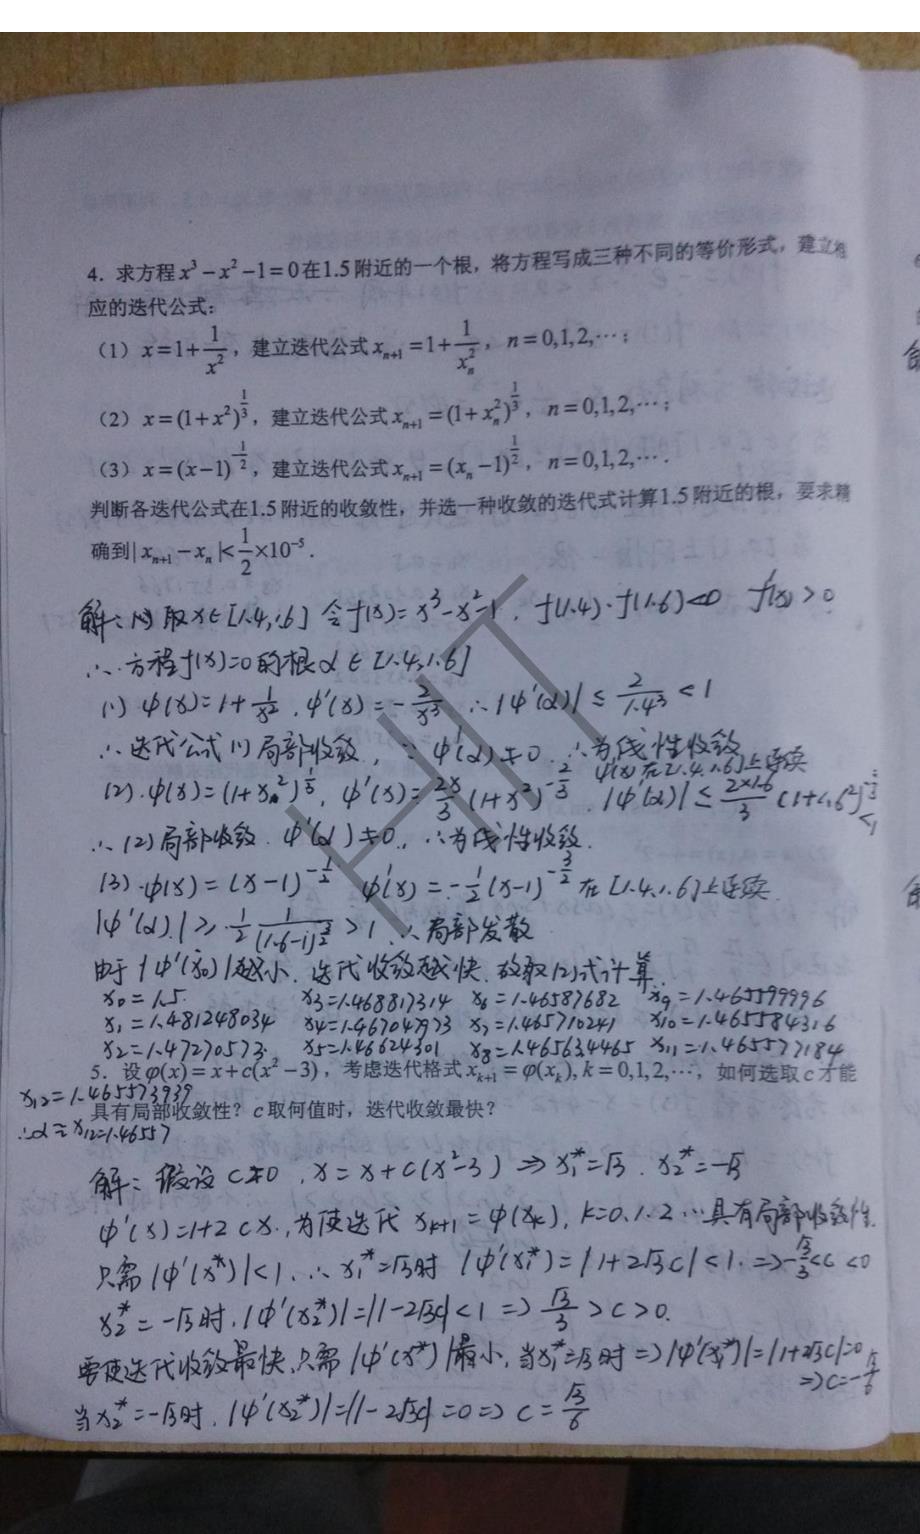 4. 求方程 x³－x²－1＝0 在 1.5 附近的一个根，将方程写成三种不同的等价形式，建立相
应的迭代公式：
（1）x＝1＋1/x²，建立迭代公式 xₙ₊₁＝1＋1/xₙ²，n＝0,1,2,⋯；
（2）x＝(1＋x²)^(1/3)，建立迭代公式 xₙ₊₁＝(1＋xₙ²)^(1/3)，n＝0,1,2,⋯；
（3）x＝(x－1)^(－1/2)，建立迭代公式 xₙ₊₁＝(xₙ－1)^(1/2)，n＝0,1,2,⋯.
判断各迭代公式在1.5附近的收敛性，并选一种收敛的迭代式计算1.5附近的根，要求精
确到|xₙ₊₁－xₙ|<1/2×10⁻⁵.
解: 取 x∈[1.4,1.6] 令 f(x)=x³-x²-1, f(1.4)·f(1.6)<0 f'(x)>0
∴方程 f(x)=0 的根 α∈[1.4,1.6]
(1) ψ(x)=1+1/x², ψ'(x)=-2/x³ ∴|ψ'(α)|≤2/1.4³<1
∴迭代公式(1)局部收敛, ∵ψ(α)≠0 ∴为线性收敛
(2) ψ(x)=(1+xₙ²)^(1/3), ψ'(x)=2x/3(1+x²)^(-2/3) ψ'(x)在[1.4,1.6]上连续 |ψ'(α)|≤2×1.6/3(1+1.6²)^(-2/3)<1
∴(2)局部收敛 ψ'(α)≠0, ∴为线性收敛.
(3) ψ(x)=(x-1)^(-1/2) ψ'(x)=-1/2(x-1)^(-3/2) 在[1.4,1.6]上连续
|ψ'(α)|≥1/2 1/(1.6-1)^(3/2)>1 ∴局部发散
由于|ψ'(x₀)|越小,迭代收敛越快.故取(2)式计算
x₀=1.5. x₃=1.468817314 x₆=1.46587682 x₉=1.465599996
x₁=1.481248034 x₄=1.467047973 x₇=1.465710241 x₁₀=1.465584316
x₂=1.47270573 x₅=1.46624301 x₈=1.465634465 x₁₁=1.465577184
x₁₂=1.465573939
∴α≈x₁₂=1.46557
5. 设 φ(x)＝x＋c(x²－3)，考虑迭代格式 xₖ₊₁＝φ(xₖ), k＝0,1,2,⋯，如何选取 c 才能
具有局部收敛性？c 取何值时，迭代收敛最快？
解: 假设 C≠0, x=x+C(x²-3) ⇒ x₁*=√3. x₂*=-√3
ψ'(x)=1+2Cx, 为使迭代 xₖ₊₁=ψ(xₖ), k=0.1.2…具有局部收敛性.
只需|ψ'(x*)|<1. ∴x₁*=√3时 |ψ'(x₁*)|=|1+2√3C|<1. ⇒-√3/3<C<0
x₂*=-√3时.|ψ'(x₂*)|=|1-2√3C|<1 ⇒ √3/3>C>0.
要使迭代收敛最快,只需|ψ'(x*)|最小,当x₁*=√3时 ⇒|ψ'(x₁*)|=|1+2√3C|=0
⇒C=-√3/6
当x₂*=-√3时,|ψ'(x₂*)|=|1-2√3C|=0 ⇒ C=√3/6
HIT